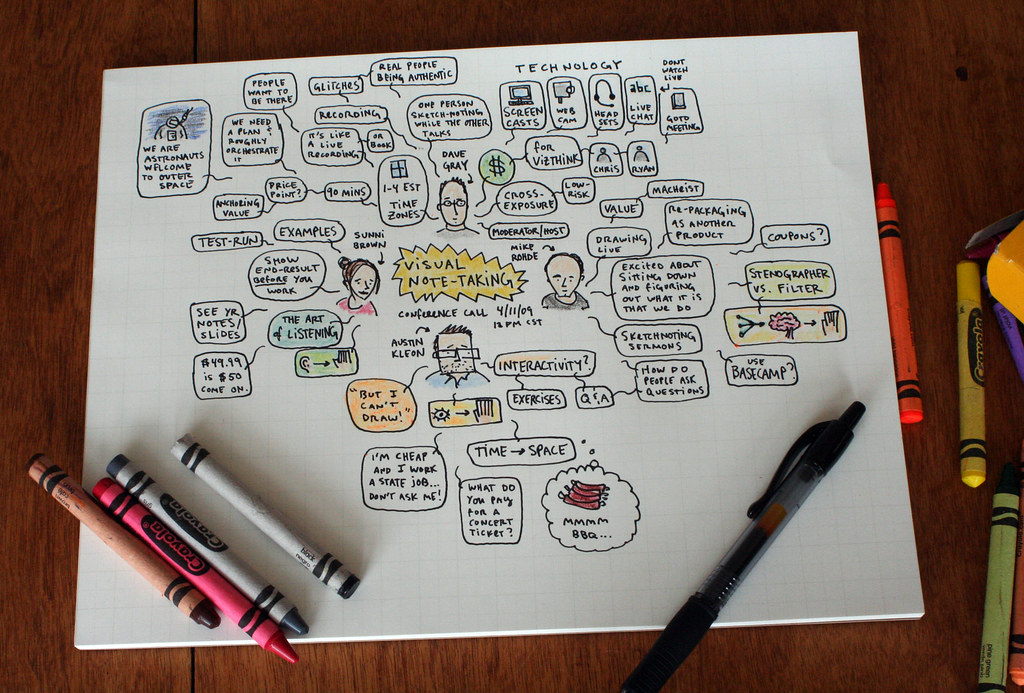 PEOPLE
WANT TO
BE THERE
GLITCHES
REAL PEOPLE
BEING AUTHENTIC
RECORDING
ONE PERSON
SKETCH-NOTING
WHILE THE OTHER
TALKS
WE ARE
ASTRONAUTS
WELCOME
TO OUTER
SPACE
WE NEED
A PLAN &
ROUGHLY
ORCHESTRATE
IT
IT'S LIKE
A LIVE
RECORDING
OR
BOOK
PRICE
POINT?
90 MINS
ANCHORING
VALUE
1-4 EST
TIME
ZONES
DAVE
GRAY
$
TECHNOLOGY
SCREEN
CASTS
WEB
CAM
HEAD
SETS
abc
LIVE
CHAT
DONT
WATCH
LIVE
GOTO
MEETING
FOR
VIZTHINK
CHRIS
RYAN
CROSS-
EXPOSURE
LOW-
RISK
MODERATOR/HOST
TEST-RUN
EXAMPLES
SUNNI
BROWN
SHOW
END-RESULT
BEFORE YOU
WORK
SEE YR
NOTES/
SLIDES
THE ART
of LISTENING
$49.99
IS $50
COME ON.
VISUAL
NOTE-TAKING
CONFERENCE CALL 4/11/09
12 PM CST
MIKE
ROHDE
VALUE
MACHEIST
DRAWING
LIVE
RE-PACKAGING
AS ANOTHER
PRODUCT
COUPONS?
EXCITED ABOUT
SITTING DOWN
AND FIGURING
OUT WHAT IT IS
THAT WE DO
STENOGRAPHER
VS. FILTER
SKETCHNOTING
SERMONS
USE
BASECAMP?
HOW DO
PEOPLE ASK
QUESTIONS
AUSTIN
KLEON
INTERACTIVITY?
EXERCISES
Q&A
"BUT I
CAN'T
DRAW!"
I'M CHEAP
AND I WORK
A STATE JOB...
DON'T ASK ME!
TIME → SPACE
WHAT DO
YOU PAY
FOR A
CONCERT
TICKET?
MMMM
BBQ...
Crayola
Crayola
black
negro
Crayola
pine green